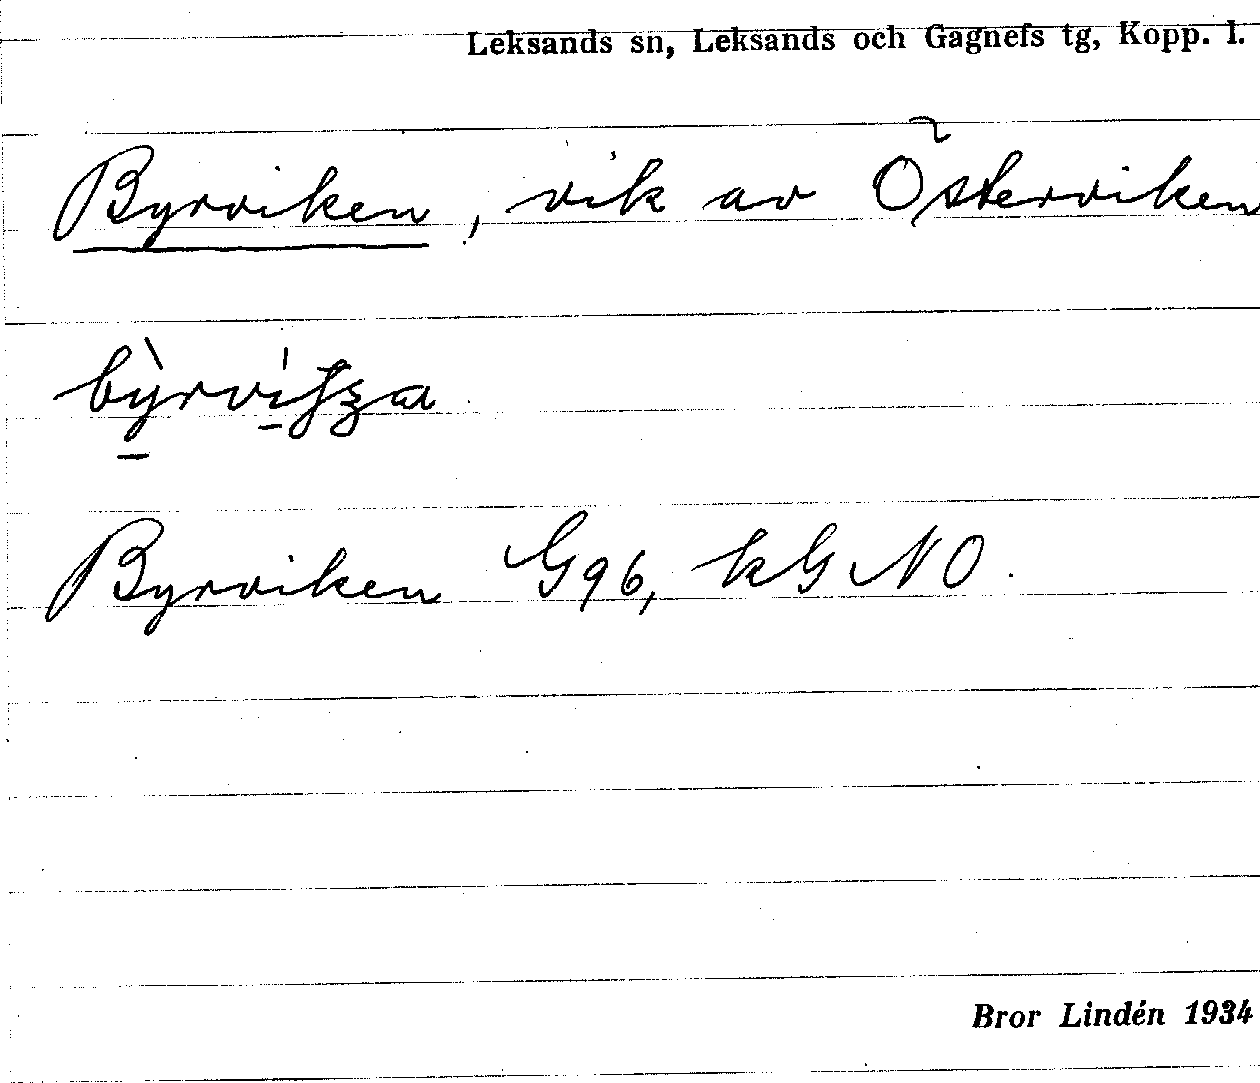 Leksands sn, Leksands och Gagnefs tg, Kopp. l.
Byrviken, vik av Österviken
Byrviken G96, kGNO.
Bror Lindén 1934